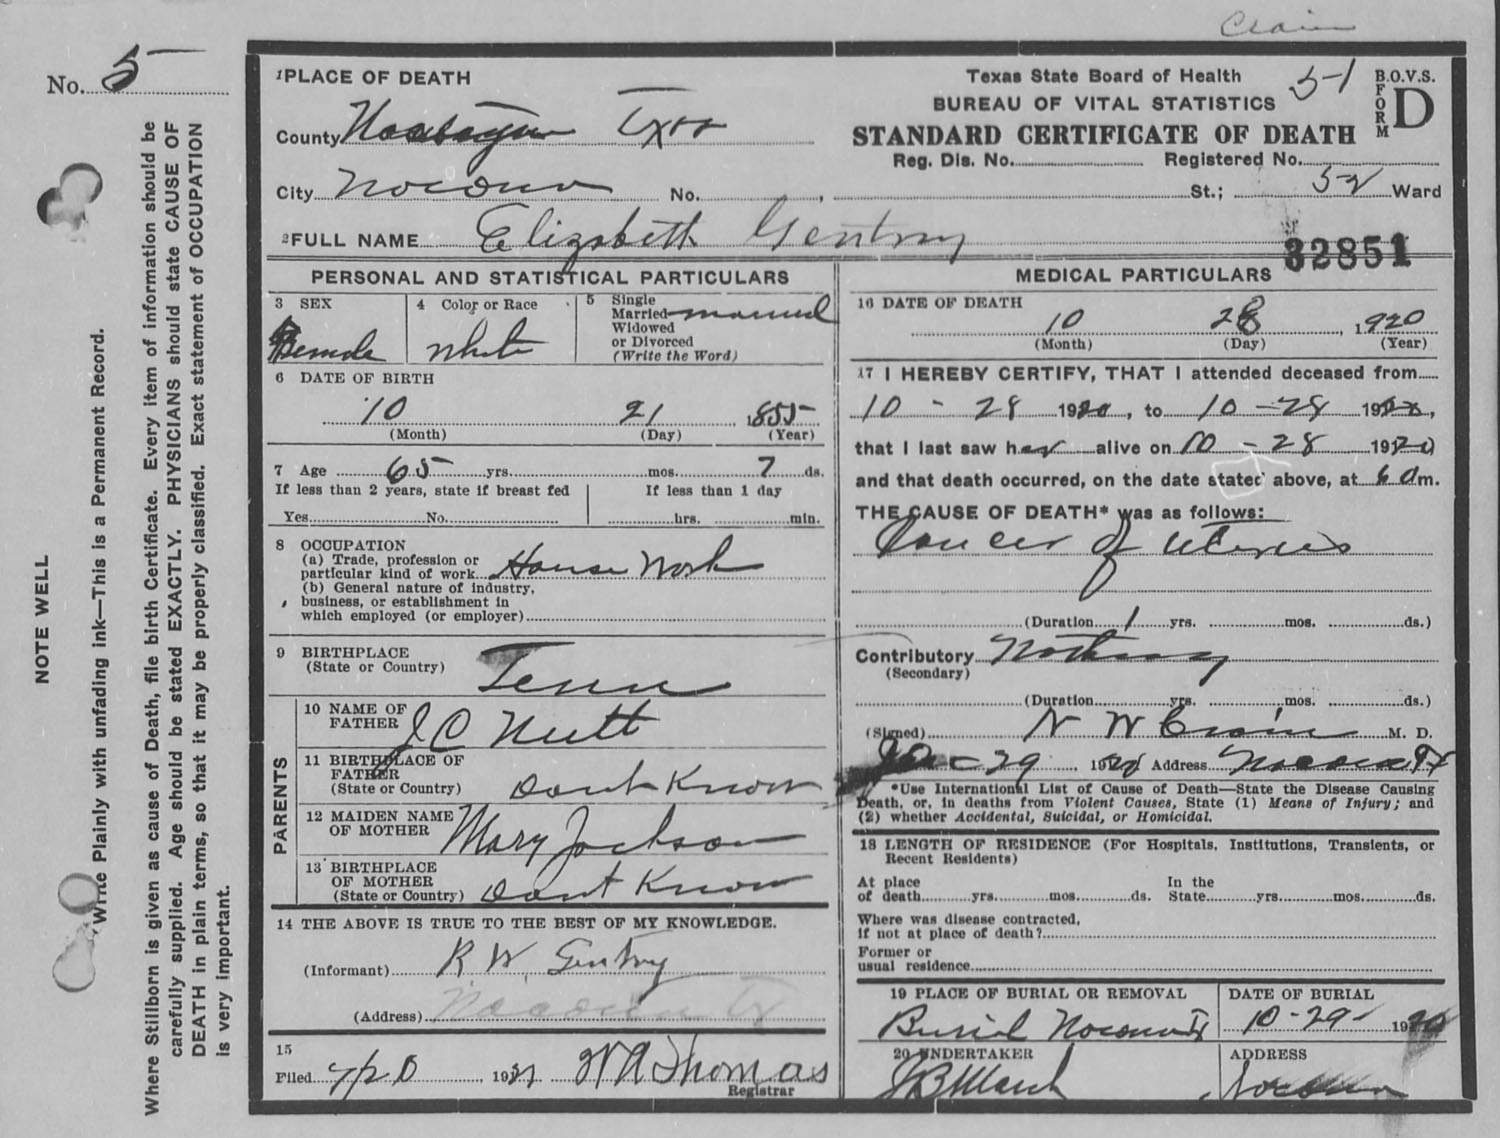 Claim
No. 5
Texas State Board of Health
BUREAU OF VITAL STATISTICS
STANDARD CERTIFICATE OF DEATH
B.O.V.S.
FORM D
51
Reg. Dis. No. Registered No.
1 PLACE OF DEATH
County
City Nocona No. St.; 52 Ward
2 FULL NAME Elizabeth Gentry
32851
PERSONAL AND STATISTICAL PARTICULARS
3 SEX
Female
4 Color or Race
White
5 Single
Married married
Widowed
or Divorced
(Write the Word)
6 DATE OF BIRTH
10 21 1855
(Month) (Day) (Year)
7 Age 65 yrs. mos. 7 ds.
If less than 2 years, state if breast fed
Yes No.
If less than 1 day
hrs. min.
8 OCCUPATION
(a) Trade, profession or
particular kind of work House Work
(b) General nature of industry,
business, or establishment in
which employed (or employer)
9 BIRTHPLACE
(State or Country) Tenn
PARENTS
10 NAME OF
FATHER J C Nutt
11 BIRTHPLACE OF
FATHER
(State or Country) Dont Know
12 MAIDEN NAME
OF MOTHER Mary Jackson
13 BIRTHPLACE
OF MOTHER
(State or Country) Dont Know
14 THE ABOVE IS TRUE TO THE BEST OF MY KNOWLEDGE.
(Informant) R W. Gentry
(Address) Nocona Tx
15
Filed 192 W A Thomas
Registrar
MEDICAL PARTICULARS
16 DATE OF DEATH
10 28 1920
(Month) (Day) (Year)
17 I HEREBY CERTIFY, THAT I attended deceased from
10 - 28 1920, to 10 - 28 1920,
that I last saw her alive on 10 - 28 1920
and that death occurred, on the date stated above, at 6 am.
THE CAUSE OF DEATH* was as follows:
Cancer of uterus
(Duration 1 yrs. mos. ds.)
Contributory Nothing
(Secondary)
(Duration yrs. mos. ds.)
(Signed) N W Crain M. D.
29 1920 Address Nocona Tx
*Use International List of Cause of Death—State the Disease Causing
Death, or, in deaths from Violent Causes, State (1) Means of Injury; and
(2) whether Accidental, Suicidal, or Homicidal.
18 LENGTH OF RESIDENCE (For Hospitals, Institutions, Transients, or
Recent Residents)
At place
of death yrs. mos. ds.
In the
State yrs. mos. ds.
Where was disease contracted,
if not at place of death?
Former or
usual residence
19 PLACE OF BURIAL OR REMOVAL
Burial Nocona Tx
DATE OF BURIAL
10-29- 1920
20 UNDERTAKER
J B March
ADDRESS
Nocona
NOTE WELL
Write Plainly with unfading ink—This is a Permanent Record.
Where Stillborn is given as cause of Death, file birth Certificate. Every item of information should be
carefully supplied. Age should be stated EXACTLY. PHYSICIANS should state CAUSE OF
DEATH in plain terms, so that it may be properly classified. Exact statement of OCCUPATION
is very important.